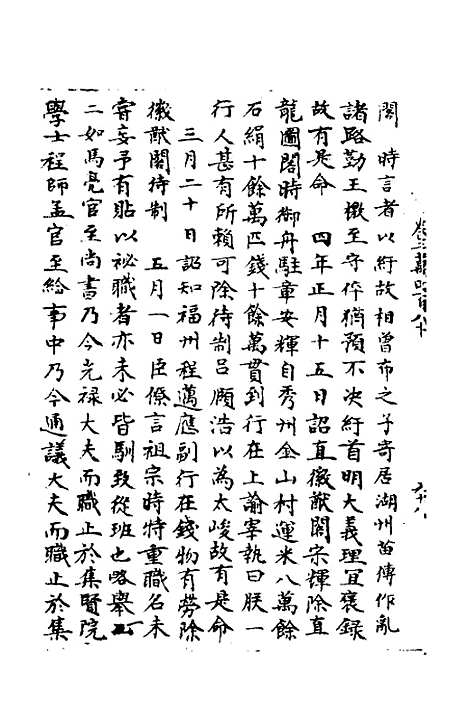 閣　時言者以紆故相曾布之子寄居湖州苗傅作亂
諸路勤王檄至守倅猶預不决紆首明大義理宜褒録
故有是命　四年正月十五日詔直徽猷閣宋輝除直
龍圖閣時御舟駐章安輝自秀州金山村運米八萬餘
石絹十餘萬匹錢十餘萬貫到行在上諭宰執曰朕一
行人甚有所賴可除待制吕頤浩以為太峻故有是命
三月二十日詔知福州程邁應副行在錢物有勞除
徽猷閣待制　五月一日臣僚言祖宗時特重職名未
嘗妄予有貼以祕職者亦未必皆馴致從班也略舉一
二如馬亮官至尚書乃今光禄大夫而職止於集賢院
學士程師孟官至給事中乃今通議大夫而職止於集